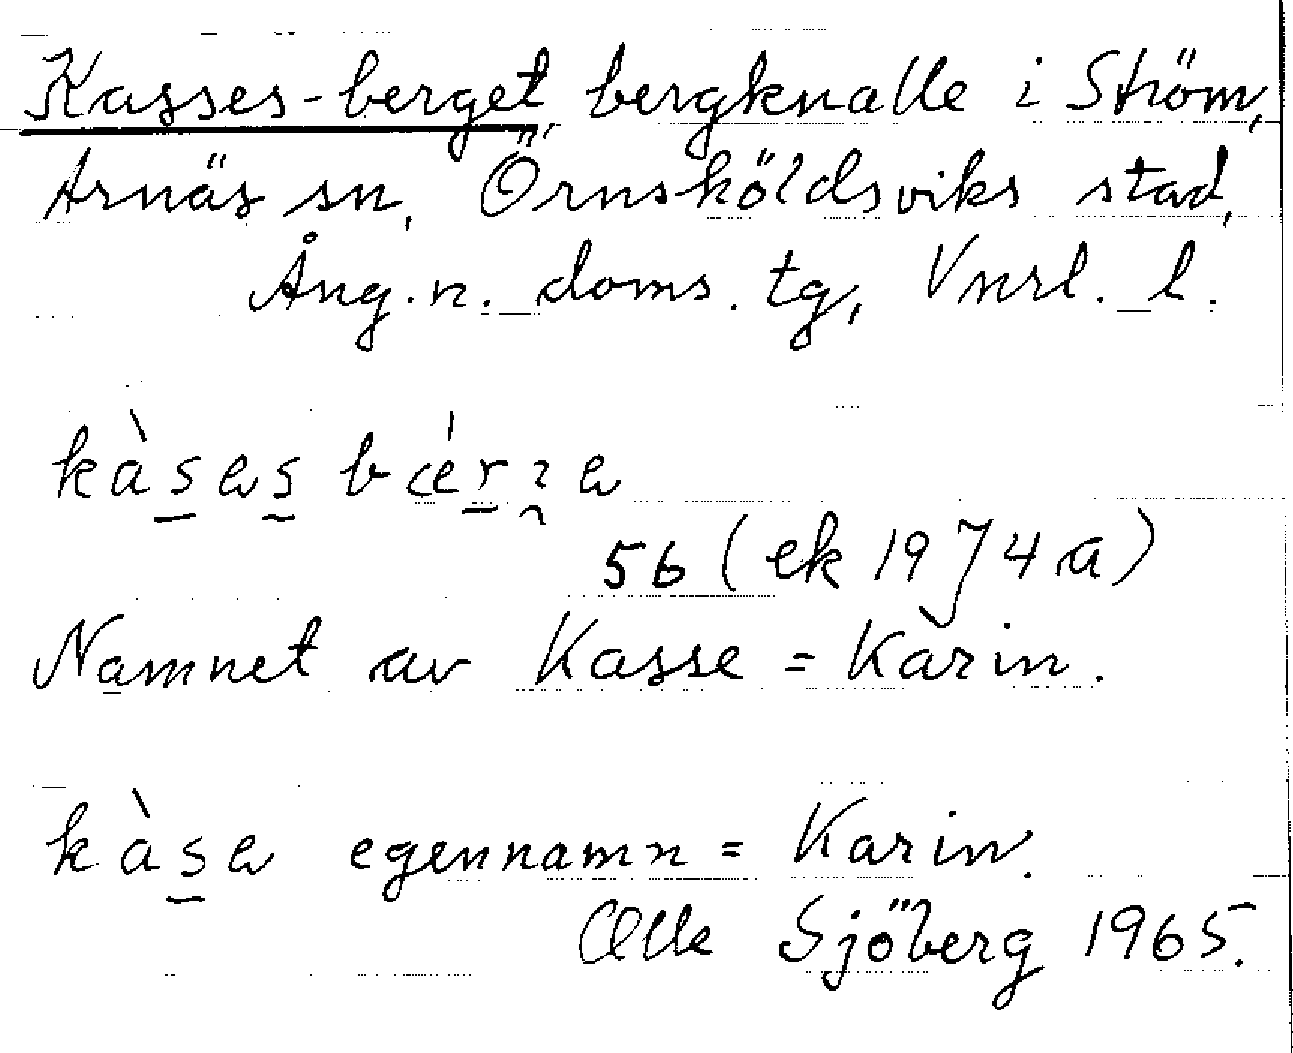 Kasses-berget, bergknalle i Ström,
Arnäs sn, Örnsköldsviks stad,
Ång.n. doms. tg, Vnrl. l.
56 (ek 1974 a)
Namnet av Kasse = Karin.
kàsa egennamn = Karin.
Olle Sjöberg 1965.